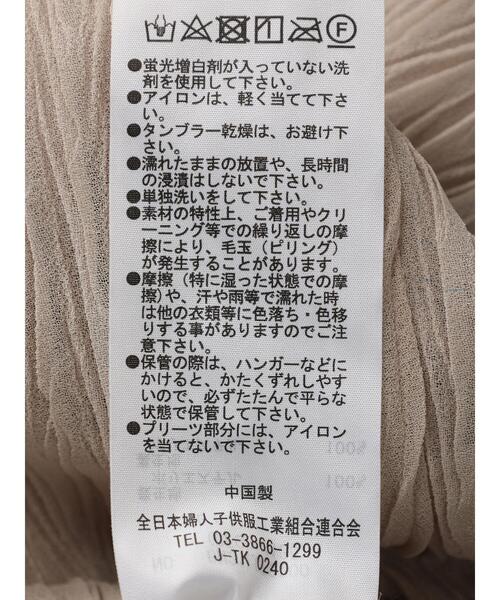 ●蛍光増白剤が入っていない洗
剤を使用して下さい。
●アイロンは、軽く当てて下さ
い。
●タンブラー乾燥は、お避け下
さい。
●濡れたままの放置や、長時間
の浸漬はしないで下さい。
●単独洗いをして下さい。
●素材の特性上、ご着用やクリ
ーニング等での繰り返しの摩
擦により、毛玉（ピリング）
が発生することがあります。
●摩擦（特に湿った状態での摩
擦）や、汗や雨等で濡れた時
は他の衣類等に色落ち・色移
りする事がありますのでご注
意下さい。
●保管の際は、ハンガーなどに
かけると、かたくずれしやす
いので、必ずたたんで平らな
状態で保管して下さい。
●プリーツ部分には、アイロン
を当てないで下さい。
中国製
全日本婦人子供服工業組合連合会
TEL 03-3866-1299
J-TK 0240